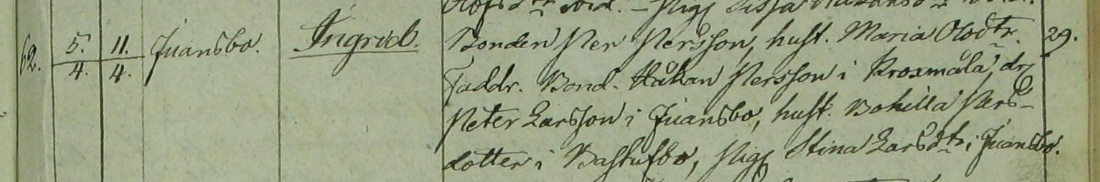 62. 5./4. 11./4. Juansbo. Ingrid. Bonden Per Persson, hust. Maria Olsdtr. 29.
Faddr. Bond. Håkan Persson i Kroxmåla, dr
Peter Larsson i Juansbo, hust. Bohilla Pers-
dotter i Bastufbo, Pig Stina Larsdtr i Juansbo.